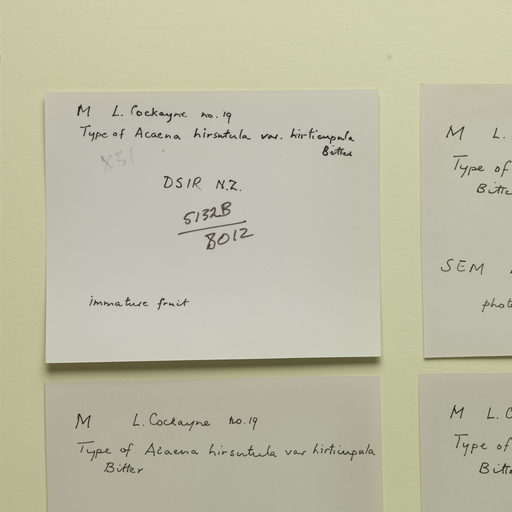 M L. Cockayne no. 19
Type of Acaena hirsutula var. hirticupula
Bitter
X31
DSIR N.Z.
5132B
8012
immature fruit
M L.
Type of
Bitte
SEM
phot
M L. Cockayne no. 19
Type of Acaena hirsutula var hirticupula
Bitter
M L. C
Type of
Bitt